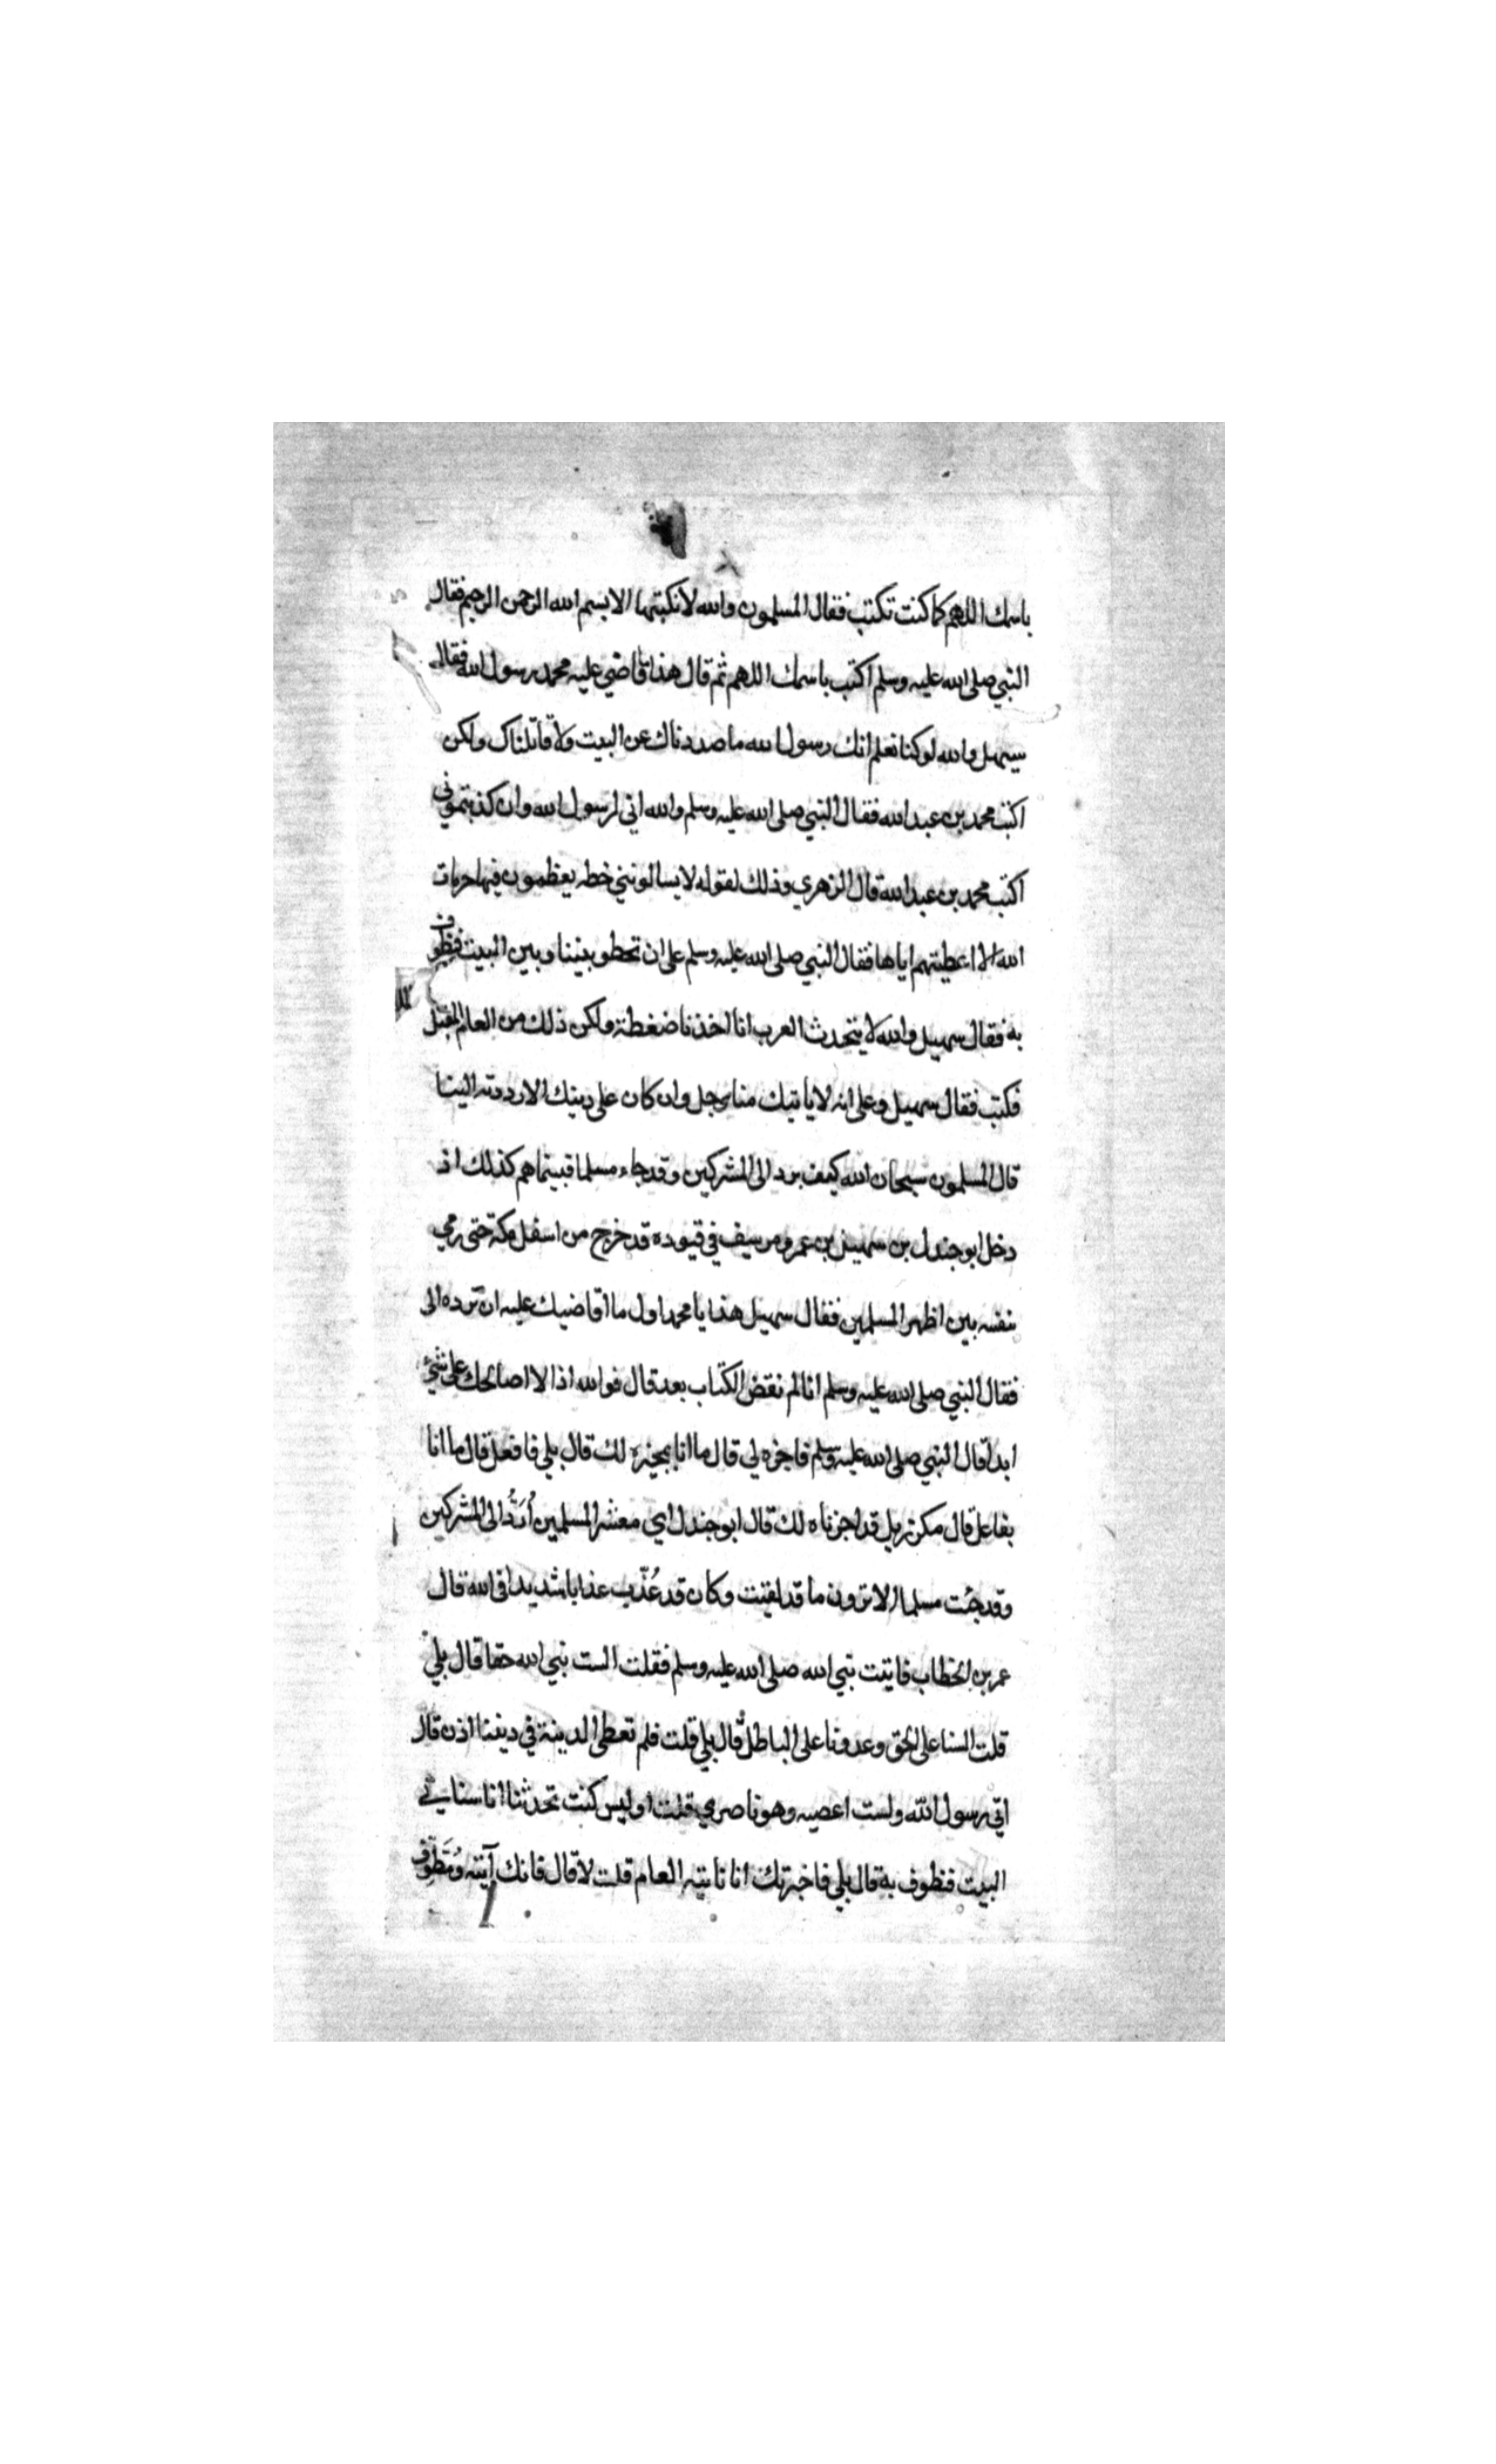 باسمك اللهم كما كنت تكتب فقال المسلمون والله لا نكتبها الا بسم الله الرحمن الرحيم فقال
النبي صلى الله عليه وسلم اكتب باسمك اللهم ثم قال هذا ما قاضي عليه محمد رسول الله فقال
سهيل والله لو كنا نعلم انك رسول الله ما صددناك عن البيت ولا قاتلناك ولكن
اكتب محمد بن عبد الله فقال النبي صلى الله عليه وسلم والله اني لرسول الله وان كذبتموني
اكتب محمد بن عبد الله قال الزهري وذلك لقوله لا يسالونني خطه يعظمون فيها حرمات
الله الا اعطيتهم اياها فقال النبي صلى الله عليه وسلم على ان تخطو بيننا وبين البيت فنطوف
به فقال سهيل والله لا يتحدث العرب انا اخذنا ضغطة ولكن ذلك من العام المقبل
فكتب فقال سهيل وعلى انه لا ياتيك منا رجل وان كان على دينك الا رددته الينا
قال المسلمون سبحان الله كيف يرد الى المشركين وقد جاء مسلما فبينما هم كذلك اذ
دخل ابو جندل بن سهيل بن عمرو يرسف في قيوده قد خرج من اسفل مكة حتى رمي
بنفسه بين اظهر المسلمين فقال سهيل هذا يا محمد اول ما اقاضيك عليه ان ترده الى
فقال النبي صلى الله عليه وسلم انا لم نقض الكتاب بعد قال فوالله اذا لا اصالحك على شئ
ابدا قال النبي صلى الله عليه وسلم فاجزه لي قال ما انا بمجيزه لك قال بلي فافعل قال ما انا
بفاعل قال مكرز بل قد اجزناه لك قال ابو جندل اي معشر المسلمين أُرَدُّ الى المشركين
وقد جئت مسلما الا ترون ما قد لقيت وكان قد عُذّب عذابا شديدا في الله قال
عمر بن الخطاب فاتيت نبي الله صلى الله عليه وسلم فقلت الست نبي الله حقا قال بلي
قلت السنا على الحق وعدونا على الباطل قال بلي قلت فلم تعطى الدينة في ديننا اذن قال
اني رسول الله ولست اعصيه وهو ناصري قلت اوليس كنت تحدثنا انا سناتي
البيت فنطوف به قال بلي فاخبرتك انا ناتيه العام قلت لا قال فانك آتيه ومُطَّوِّف